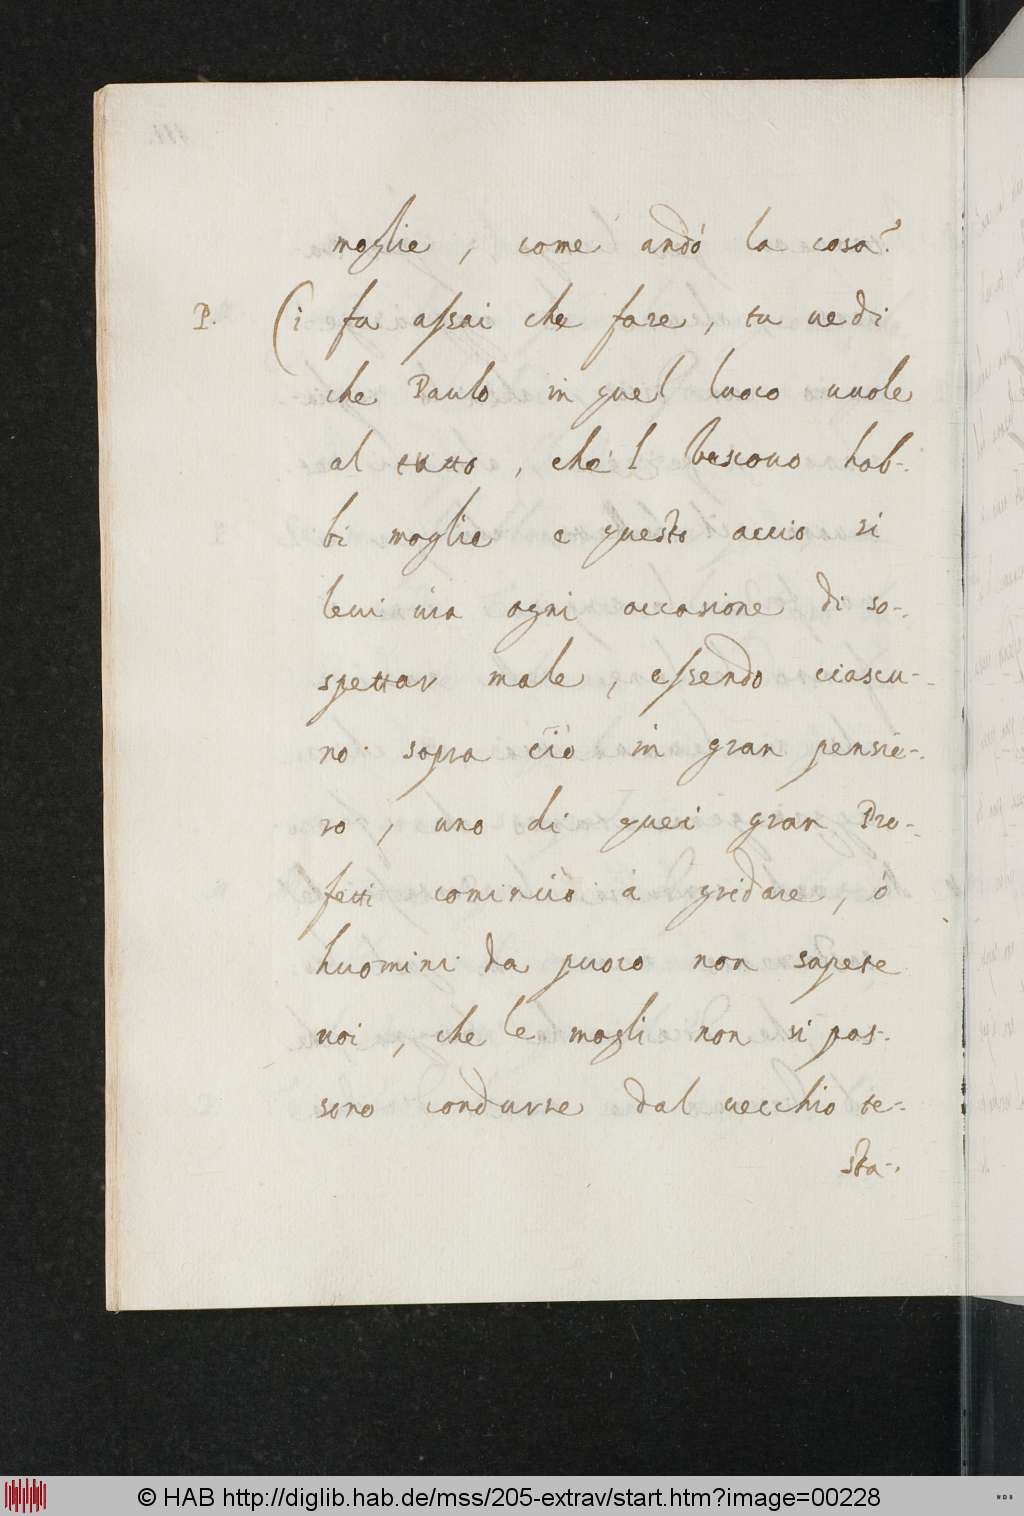 moglie, come andò la cosa?
P. Ci fu assai che fare, tu uedi
che Paulo in quel luoco uuole
al tutto, che'l Vescouo hab-
bi moglie e questo accio si
leui uia ogni occasione di so-
spettar male, essendo ciascu-
no sopra ciò in gran pensie-
ro, uno di quei gran Pro-
fetti cominciò à gridare, ò
huomini da puoco non sapete
uoi, che le mogli non si pos-
sono condurre dal uecchio te-
sta-
© HAB http://diglib.hab.de/mss/205-extrav/start.htm?image=00228